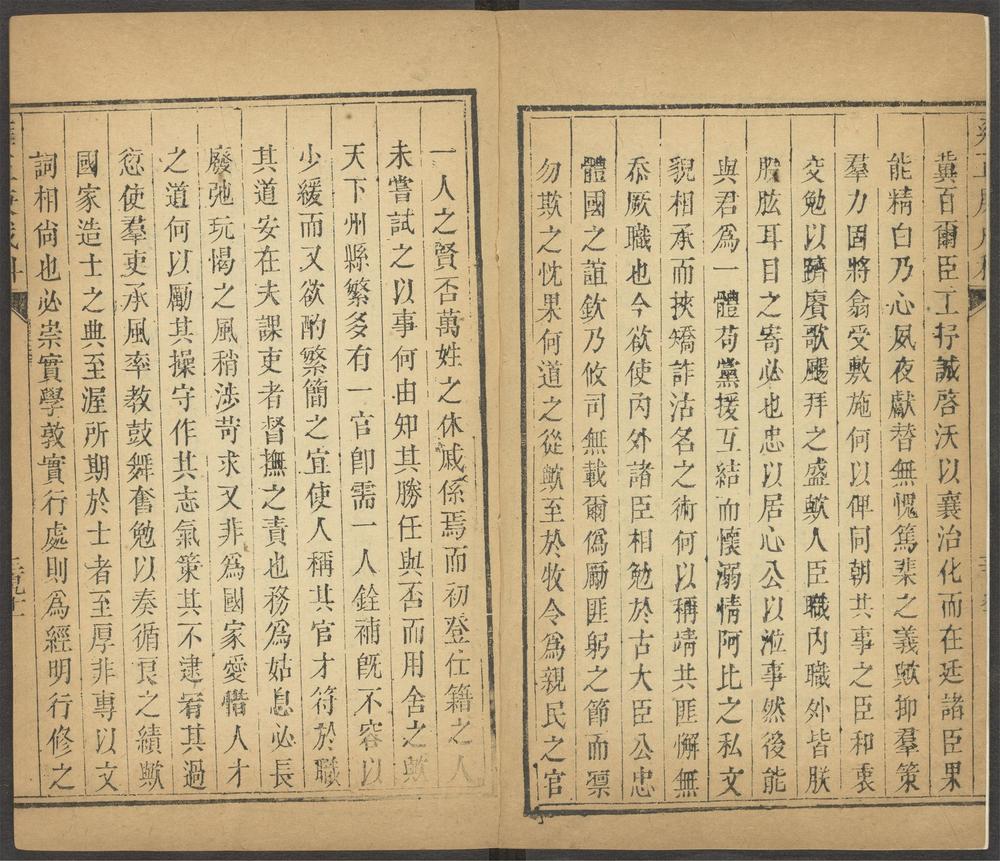 冀百爾臣工抒誠啓沃以襄治化而在廷諸臣果
能精白乃心夙夜獻替無愧篤棐之義歟抑羣策
羣力固將翕受敷施何以俾同朝共事之臣和衷
交勉以躋賡歌颺拜之盛歟人臣職內職外皆朕
股肱耳目之寄必也忠以居心公以涖事然後能
與君爲一體苟黨援互結而懷溺情阿比之私文
貌相承而挾矯詐沽名之術何以稱靖共匪懈無
忝厥職也今欲使內外諸臣相勉於古大臣公忠
體國之誼欽乃攸司無載爾僞勵匪躬之節而凛
勿欺之忱果何道之從歟至於牧令爲親民之官
一人之賢否萬姓之休戚係焉而初登仕籍之人
未嘗試之以事何由知其勝任與否而用舍之歟
天下州縣繁多有一官卽需一人銓補旣不容以
少緩而又欲酌繁簡之宜使人稱其官才符於職
其道安在夫課吏者督撫之責也務爲姑息必長
廢弛玩愒之風稍涉苛求又非爲國家愛惜人才
之道何以勵其操守作其志氣策其不逮宥其過
愆使羣吏承風率教鼓舞奮勉以奏循良之績歟
國家造士之典至渥所期於士者至厚非專以文
詞相尙也必崇實學敦實行處則爲經明行修之